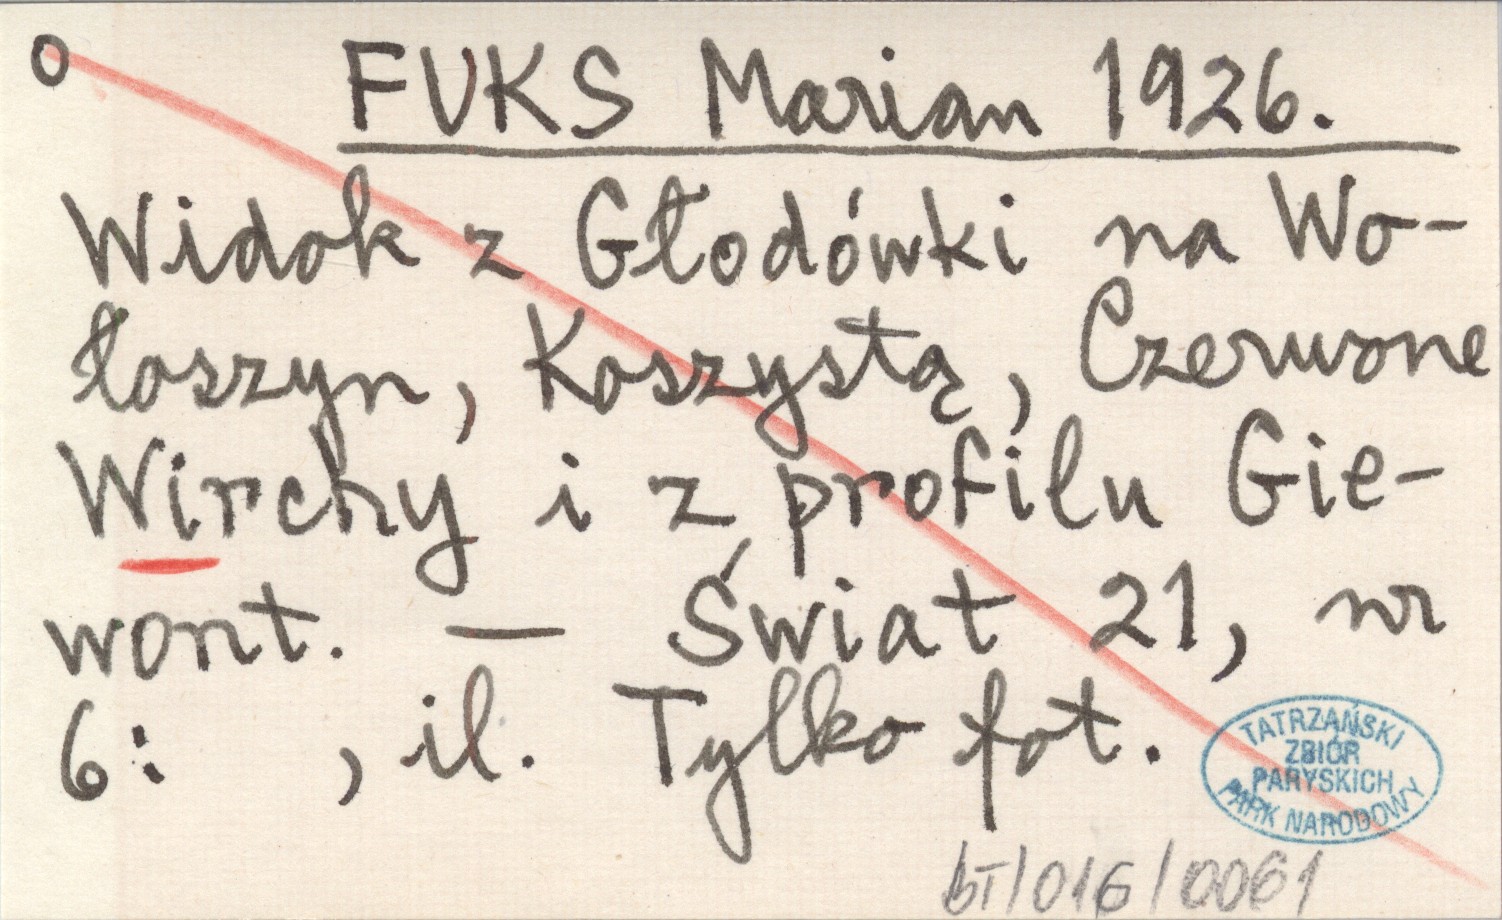 o FUKS Marian 1926.
Widok z Głodówki na Wo-
łoszyn, Koszystą, Czerwone
Wirchy i z profilu Gie-
wont. — Świat 21, nr
6: , il. Tylko fot.
TATRZAŃSKI
ZBIÓR
PARYSKICH
PARK NARODOWY
bT/016/0061